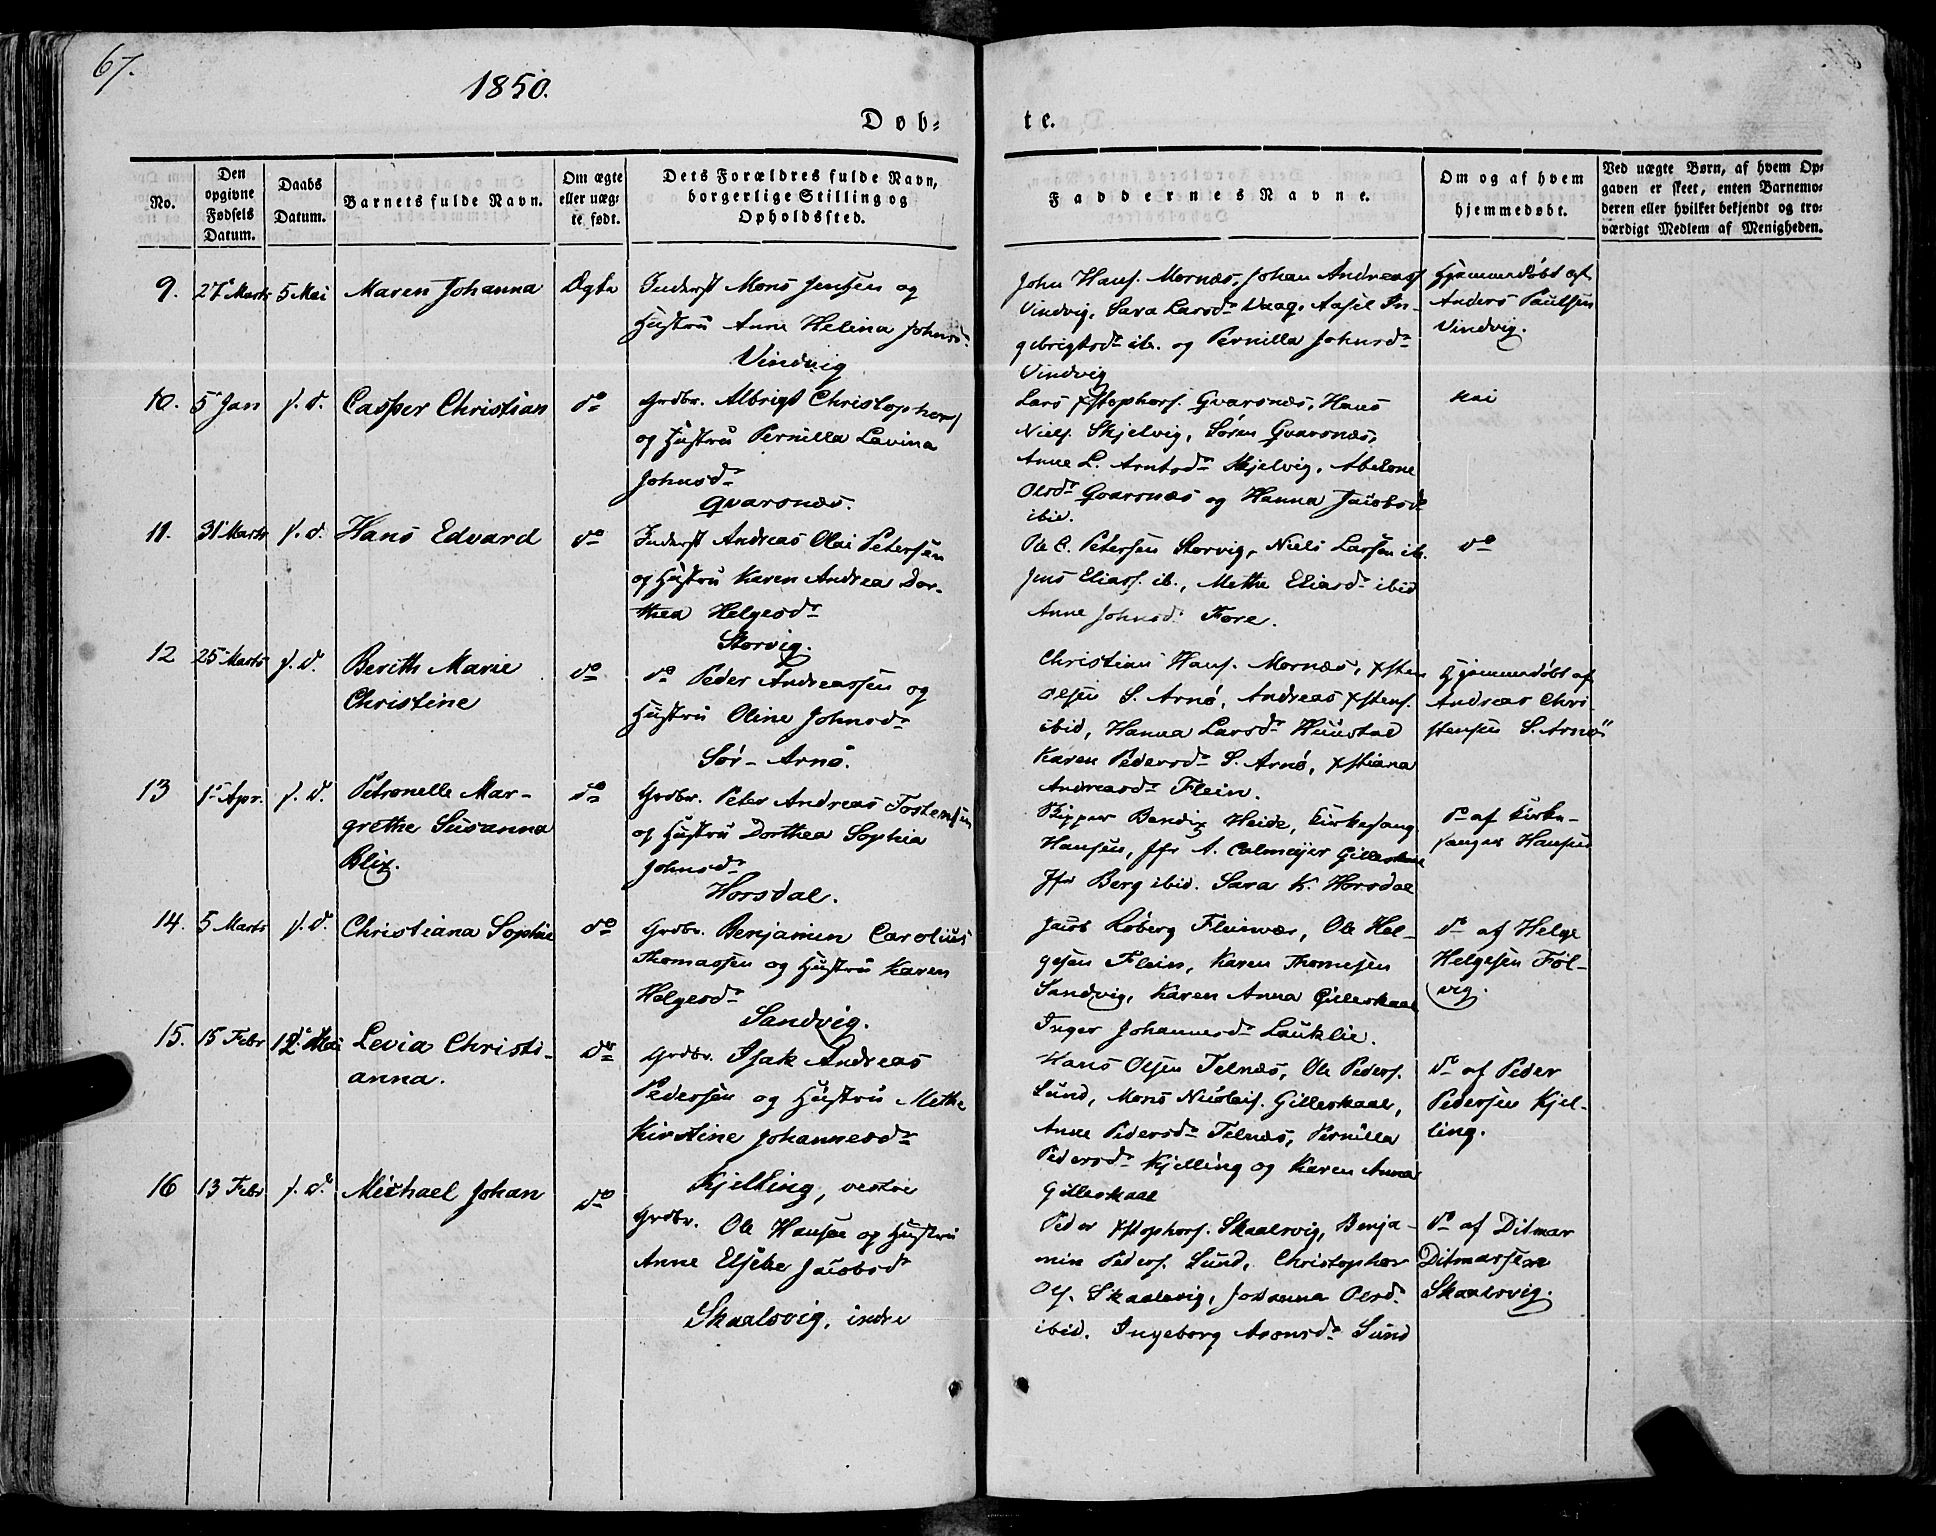 67.
1850.
Døb-
te.
No.
Den
opgivne
Fødsels
Datum.
Daabs
Datum.
Barnets fulde Navn.
Om ægte
eller uæg-
te født.
Dets Forældres fulde Navn,
borgerlige Stilling og
Opholdssted.
Faddernes Navne.
Om og af hvem
hjemmedøbt.
Ved uægte Børn, af hvem Op-
gaven er skeet, enten Barnemo-
deren eller hvilket bekjendt og tro-
værdigt Medlem af Menigheden.
9. 27 Marts 5 Mai Maren Johanna Ægte
Inderst Mons Jensen og
Hustru Anne Helina Johnsd.
Vindvig
John Hans. Mornæs, Johan Andreass
Vindvig, Sara Larsdr Vaag, Aasil In-
gebrigtsdr ib. og Pernilla Johnsdr
Vindvig
Hjemmedøbt af
Anders Paulsen
Vindvig.
10. 5 Jan s. d. Casper Christian do
Grdbr. Albrigt Christophers
og Hustru Pernilla Lavina
Johnsdr
Qvarsnæs.
Lars Xstophers. Qvarsnæs, Hans
Niels. Skjelvig, Søren Qvarsnæs,
Anne L. Arntsdr Skjelvig, Abelone
Olsdr Qvarsnæs og Hanna Jacobsdr
ibid.
nei
11. 31 Marts s. d. Hans Edvard do
Inderst Andreas Olai Petersen
og Hustru Karen Andrea Dor-
thea Helgesdr
Storvig.
Ole C. Petersen Storvig, Niels Larsen ib.
Jens Eliass. ib., Methe Eliasdr ibid
Anne Johnsd. Fore.
do
12 25 Marts s. d. Berith Marie
Christine
do
do Peder Andreassen og
Hustru Oline Johnsdr
Sør-Arnø.
Christian Hans. Mornæs, Xsten
Olsen S. Arnø, Andreas Xstens.
ibid, Hanna Larsdr Huustad
Karen Pedersdr S. Arnø, Xstiana
Andreasdr Flein.
Hjemmedøbt af
Andreas Chri-
stensen S. Arnø
13 1 Apr. s. d. Petronelle Mar-
grethe Susanna
Blix.
do
Grdbr. Peter Andreas Tostensen
og Hustru Dorthea Sophia
Johnsdr
Horsdal.
Skipper Bendix Heide, Kirkesang
Hansen, Jfr A. Colmeyer Gilleskaal
Jfr Berg ibid. Sara K. Horsdal
do af Kirke-
sanger Hansen
14. 5 Marts s. d. Christiana Sophie do
Grdbr. Benjamin Carolius
Thomassen og Hustru Karen
Helgesdr
Sandvig.
Jacob Røberg Fleinvær, Ole Hel-
gesen Flein, Karen Thomesen
Sandvig, Karen Anna Gilleskaal
Inger Johannesdr Lauklie.
do af Helge
Helgesen Føl-
vig.
15. 15 Febr 12 Mai Levia Christi-
anna.
do
Grdbr. Isak Andreas
Pedersen og Hustru Methe
Kirstine Johannesdr
Kjelling, vestre
Hans Olsen Telnæs, Ole Peders.
Lund, Mons Nicolais. Gilleskaal,
Anne Pedersdr Telnæs, Pernilla
Pedersdr Kjelling og Karen Anna
Gilleskaal
do af Peder
Pedersen Kjel-
ling.
16 13 Febr s. d. Michael Johan do
Grdbr. Ole Hansen og Hustru
Anne Elsche Jacobsdr
Skaalsvig, indre
Peder Xstophers. Skaalsvig, Benja-
min Peders. Lund, Christopher
Ols. Skaalsvig, Johanna Olsdr
ibid. Ingeborg Aronsdr Lund
do af Ditmar
Ditmarsen
Skaalsvig.